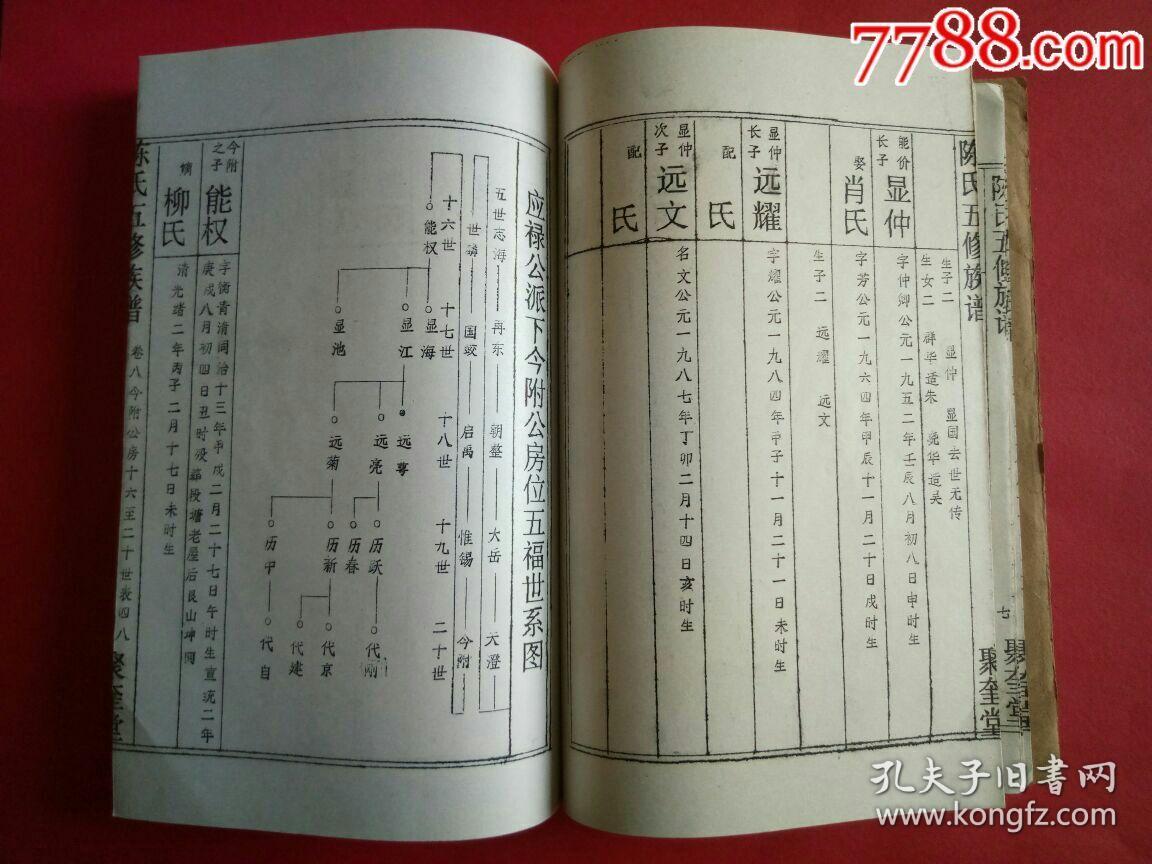 7788.com
陈氏五修族谱
聚奎堂
陈氏五修族谱
七
聚奎堂
生子二 显仲 显国去世无传
生女二 辟华适朱 尧华适吴
能价长子 显仲 字仲卿公元一九五二年壬辰八月初八日申时生
娶 肖氏 字芳公元一九六四年甲辰十一月二十日戌时生
生子二 远耀 远文
显仲长子 远耀 字耀公元一九八四年甲子十一月二十一日未时生
配 氏
显仲次子 远文 名文公元一九八七年丁卯二月十四日亥时生
配 氏
应禄公派下今附公房位五福世系图
五世志海 再东 朝整 大岳 天澄
世璘 国蛟 启禹 惟锡 今附
十六世 十七世 十八世 十九世 二十世
能权 显海
显江 远尊
远亮 历跃 代刚
历春
显池 远菊 历新 代京
代建
历甲 代自
今附之子 能权 字衡青清同治十三年甲戌二月二十七日午时生宣统二年
庚戌八月初四日丑时没葬段塘老屋后艮山坤向
娴 柳氏 清光绪二年丙子二月十七日未时生
陈氏五修族谱 卷八今附公房十六至二十世表四八 聚奎堂
孔夫子旧书网
kongfz.com